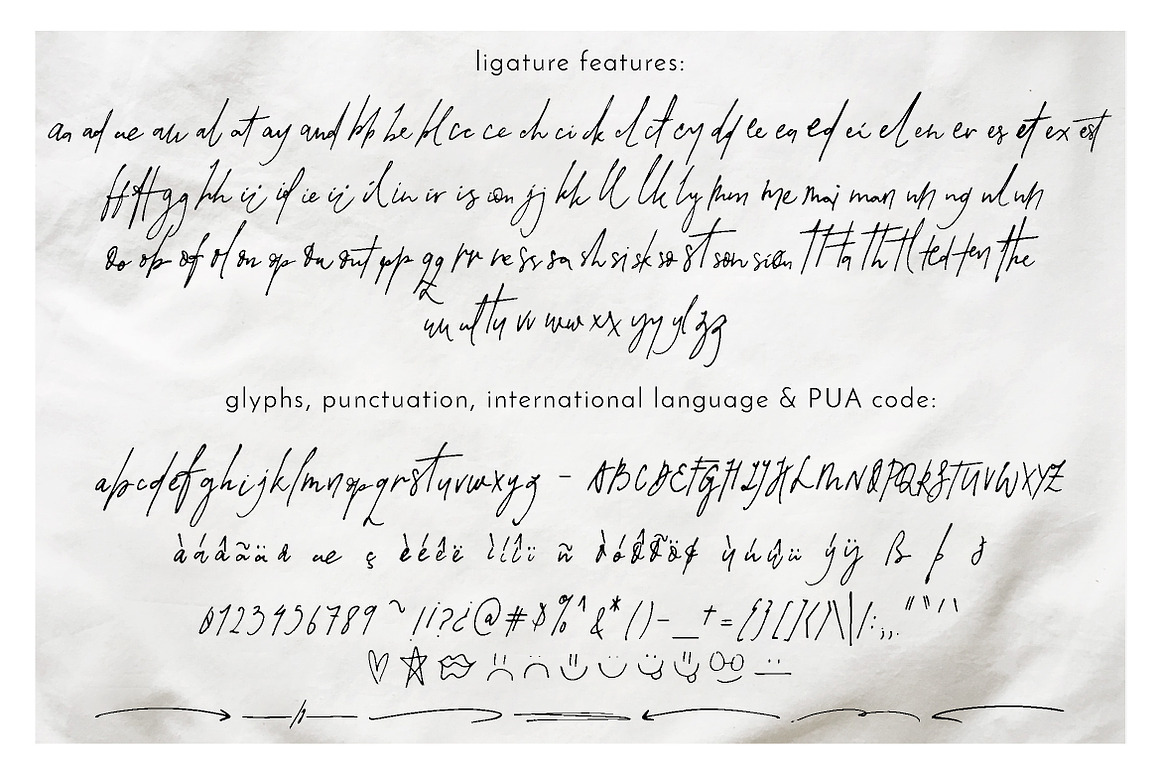 ligature features:
aa ad ae au al at ay and bb be bl cc ce ch ci ck cl ct cy dd ee ea ed ei el en er es et ex est
ff fft gg hh ii id ie ij il in ir is ion jj kk ll lk ly mm me mai man nn ng nl nh
oo ob of ol on op ou out pp qq rr re ss sa sh si sk so st son sion tt ta th tl ted ten the
uu ul tu vv ww xx yy yl zz
glyphs, punctuation, international language & PUA code:
abcdefghijklmnopqrstuvwxyz - ABCDEFGHIJKLMNOPQRSTUVWXYZ
àáâãäå æ ç èéêë ìíîï ñ òóôõöø ùúûü ýÿ ß þ
0123456789 ~ !¡?¿@#$%^&*()-_+={}[]<>/\|/:;,.